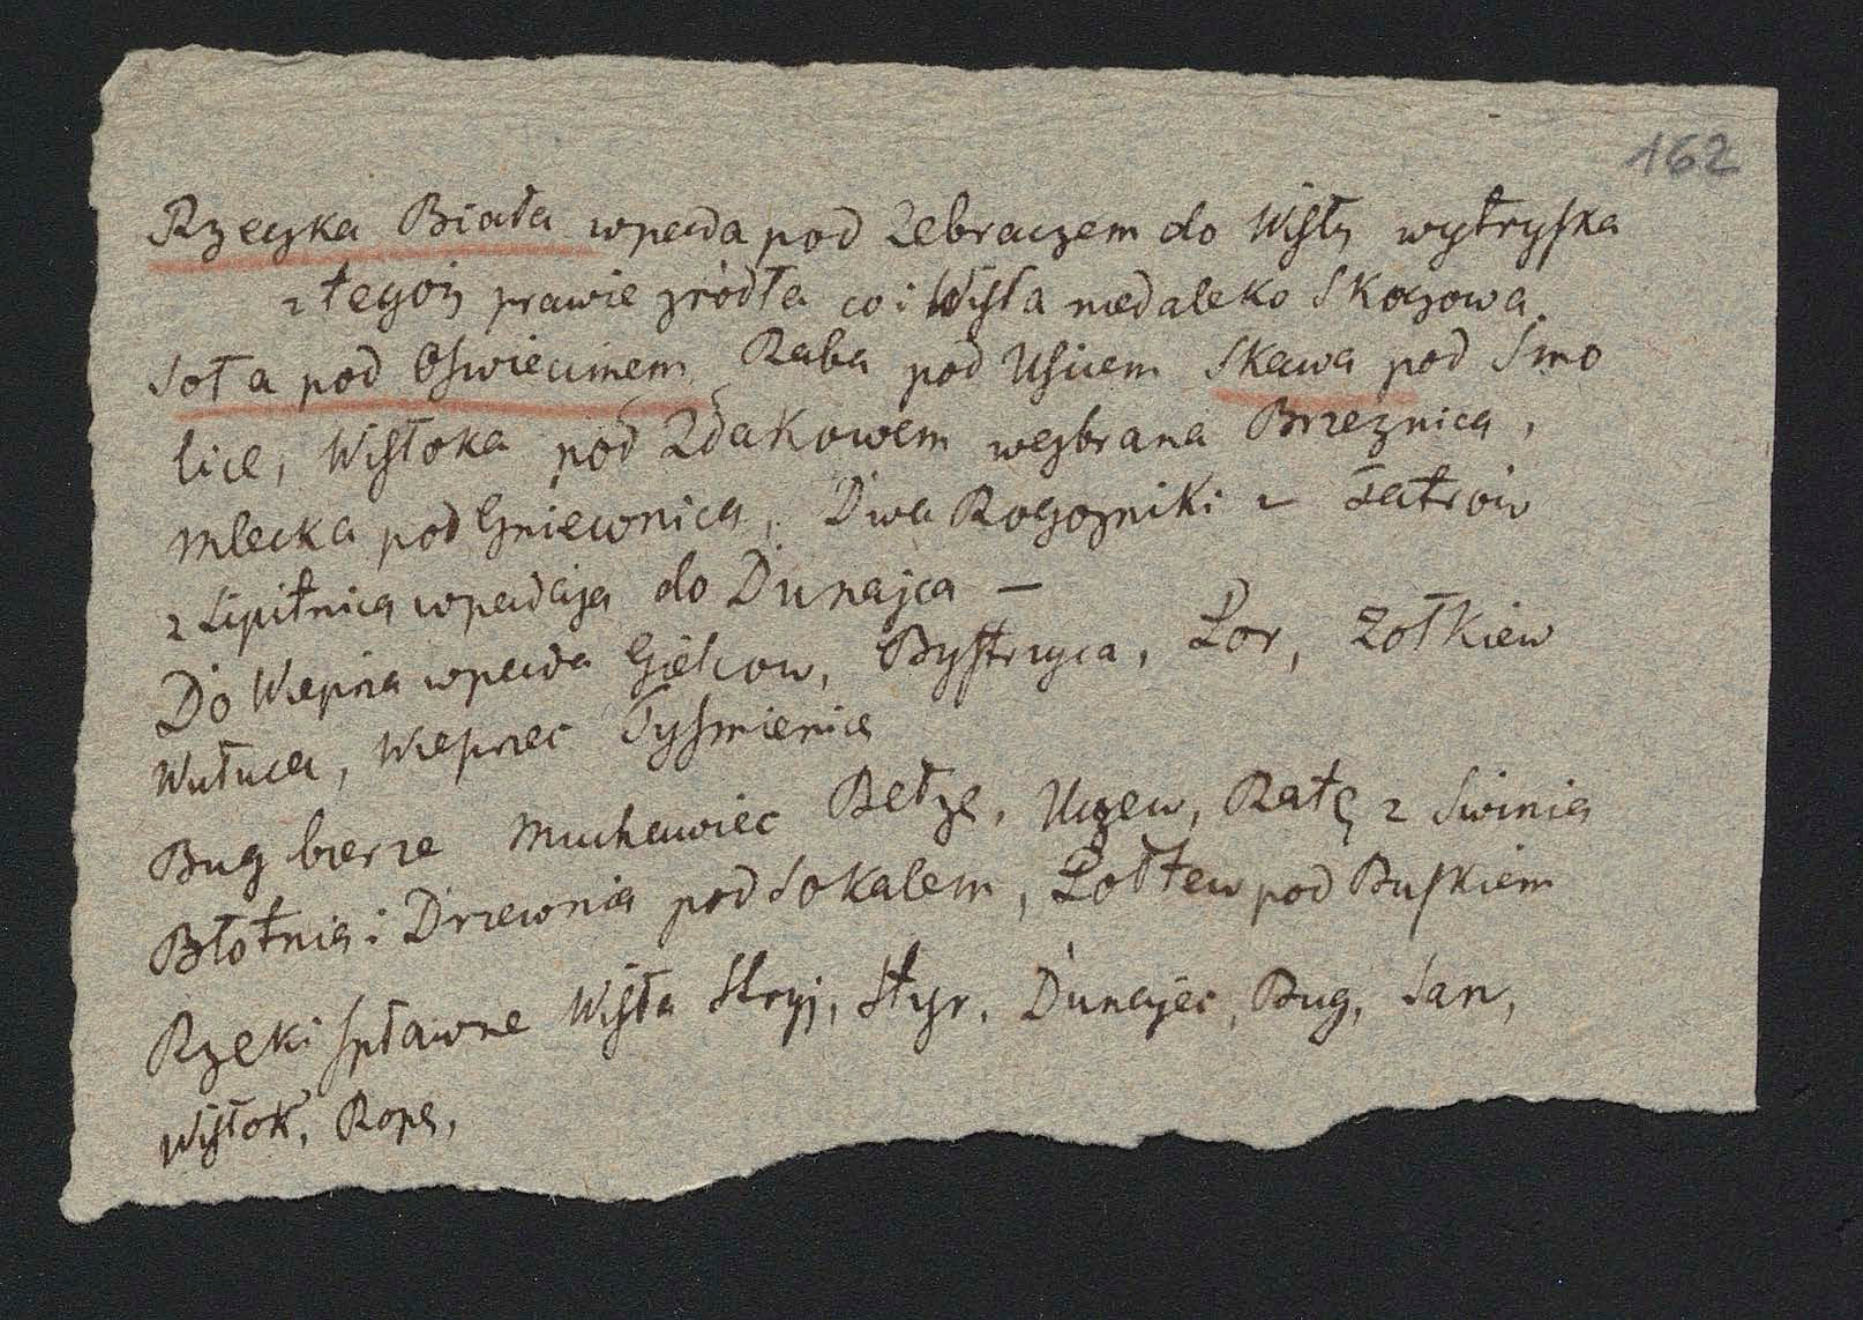 162
Rzeczka Biała wpada pod Zebraczem do Wisły wytryska
z tegoż prawie zródła co i Wisła niedaleko Skoczowa.
Soła pod Oswiecimem Raba pod Usciem Skawa pod Smo
lice, Wisłoka pod Zdakowem wezbrana Brzeznicą,
Mlecka pod Gniewnicą, Dwa Rogozniki z Tatrów
z Lipitnicą wpadają do Dunajca —
Do Wieprza wpada Giełcow, Bystrzyca, Por, Zołkiew
Wutuca, Wieprzec Tysmienica
Bug bierze Muchawiec Bełzę, Uczew, Ratę z Swinią
Błotnią i Drzewnią pod Sokalem, Połtew pod Buskiem
Rzeki spławne Wisła Stryj, Styr, Dunajec, Bug, San,
Wisłok, Ropa,